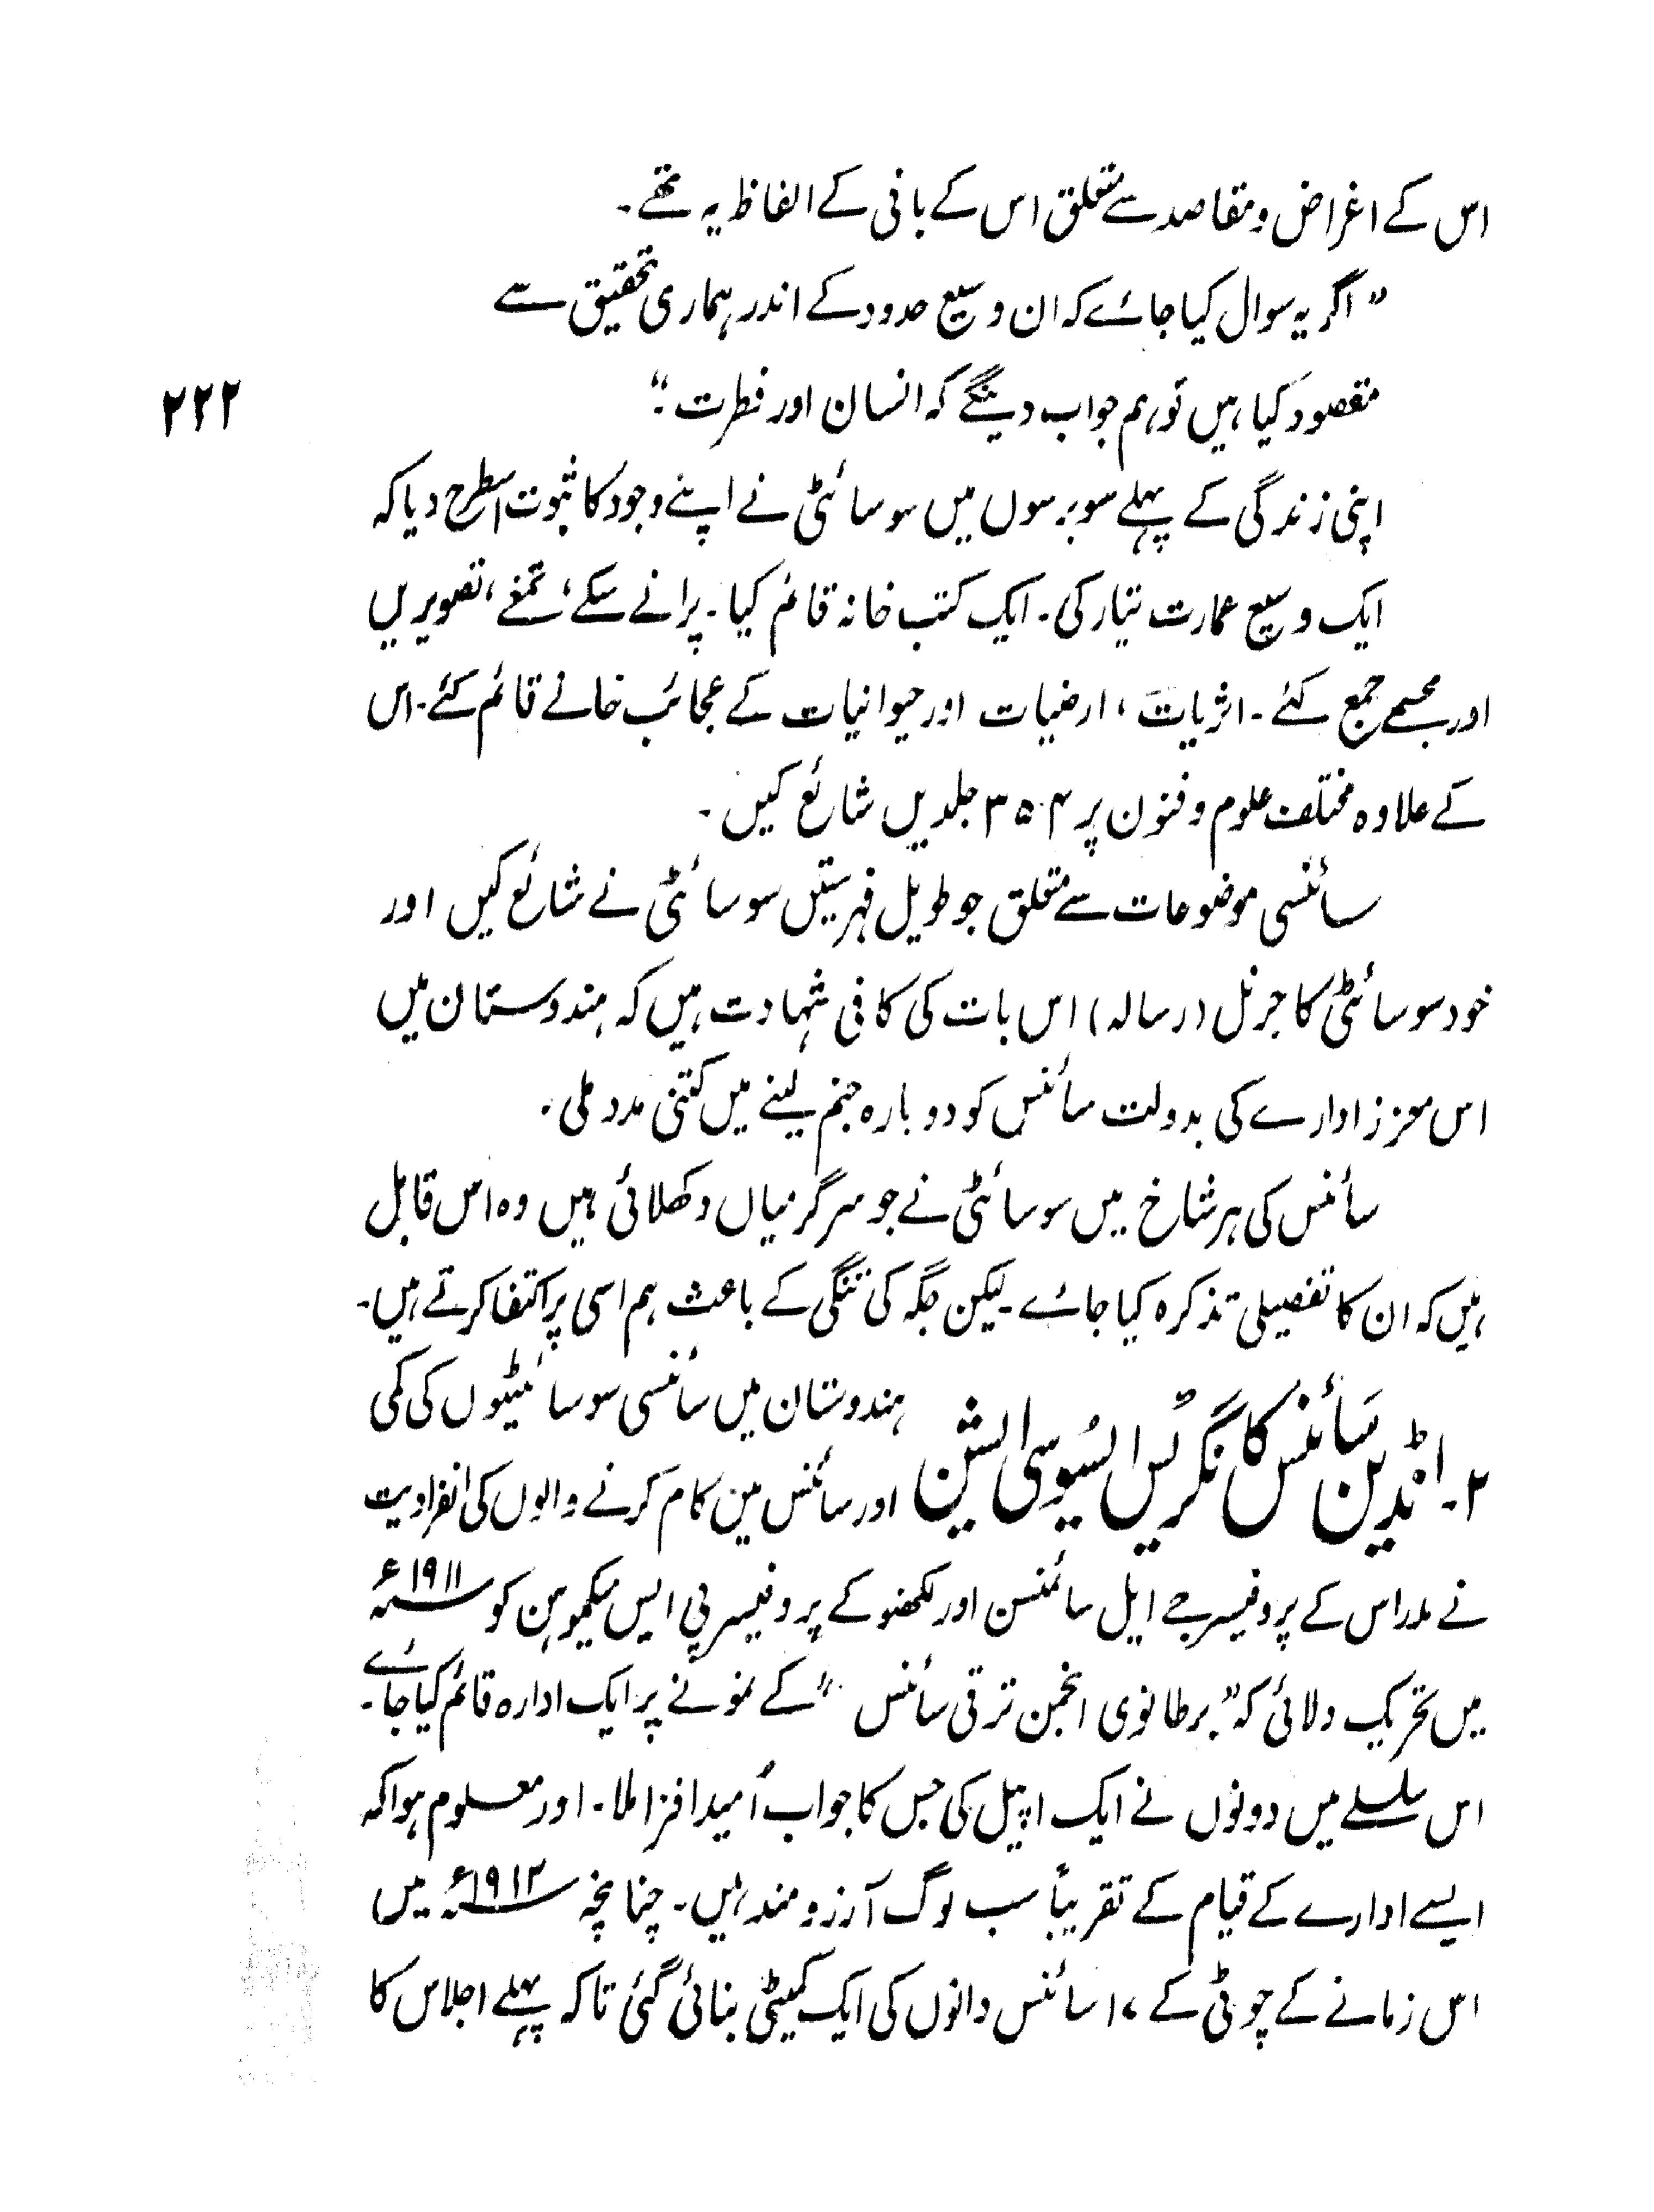 اس کے اغراض و مقاصد سے متعلق اس کے بانی کے الفاظ یہ تھے۔
"اگر یہ سوال کیا جائے کہ ان وسیع حدود کے اندر ہماری تحقیق سے
مقصود کیا ہیں تو ہم جواب دینگے کہ انسان اور فطرت۔"
۲۲۲
اپنی زندگی کے پہلے سو برسوں میں سوسائٹی نے اپنے وجود کا ثبوت اسطرح دیا کہ
ایک وسیع عمارت تیار کی۔ ایک کتب خانہ قائم کیا۔ پرانے سکے، تمغے، تصویریں
اور مجسمے جمع کئے۔ اثریات، ارضیات اور حیوانیات کے عجائب خانے قائم کئے۔ اس
کے علاوہ مختلف علوم و فنون پر ۳۵۰۴ جلدیں شائع کیں۔
سائنسی موضوعات سے متعلق جو طویل فہرستیں سوسائٹی نے شائع کیں اور
خود سوسائٹی کا جرنل (رسالہ) اس بات کی کافی شہادت ہیں کہ ہندوستان میں
اس معزز ادارے کی بدولت سائنس کو دوبارہ جنم لینے میں کتنی مدد ملی۔
سائنس کی ہر شاخ میں سوسائٹی نے جو سرگرمیاں دکھلائی ہیں وہ اس قابل
ہیں کہ ان کا تفصیلی تذکرہ کیا جائے۔ لیکن جگہ کی تنگی کے باعث ہم اسی پر اکتفا کرتے ہیں۔
۲۔ انڈین سائنس کانگریس ایسوسی ایشن ہندوستان میں سائنسی سوسائیٹیوں کی کمی
اور سائنس میں کام کرنے والوں کی انفرادیت
نے مدراس کے پروفیسر جے ایل سائمنسن اور لکھنو کے پروفیسر پی ایس میکموہن کو ۱۹۱۱ء
میں تحریک دلائی کہ "برطانوی انجمن ترقی سائنس" کے نمونے پر ایک ادارہ قائم کیا جائے۔
اس سلسلے میں دونوں نے ایک اپیل کی جس کا جواب اُمید افزا ملا۔ اور معلوم ہوا کہ
ایسے ادارے کے قیام کے تقریباً سب لوگ آرزو مند ہیں۔ چنانچہ ۱۹۱۲ء میں
اس زمانے کے چوٹی کے ۱۷ سائنس دانوں کی ایک کمیٹی بنائی گئی تاکہ پہلے اجلاس کا